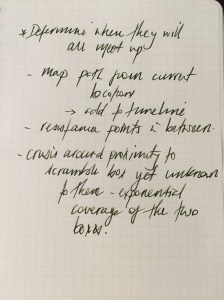 *Determine when they will
all meet up.
- map path from current
location
→ add to timeline
- resistance points in between.
- crisis around proximity to
scramble box yet unknown
to them - exponential
coverage of the two
boxes.